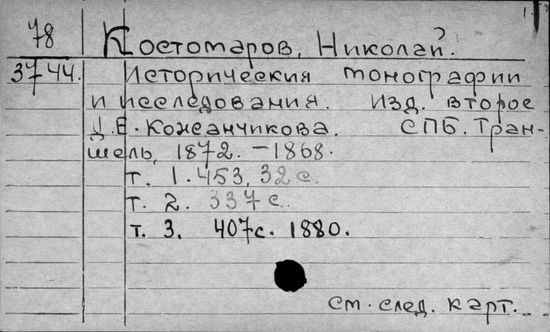 78
Костомаров, Николай.
3744.
Историческия монографии
и исследования. Изд. второе
Д.Е. Кожанчикова. СПБ. Тран-
шель, 1872. - 1868.
т. 1. 453, 32 с.
т. 2. 337 с.
т. 3. 407 с. 1880.
см. след. карт.